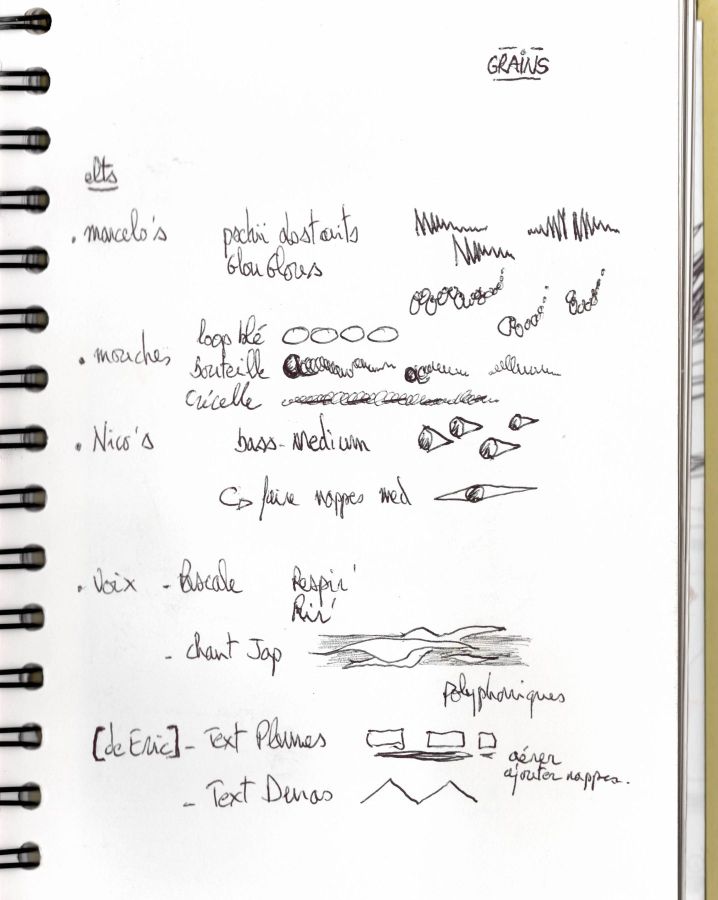 GRAINS
elts
. marcelo's
Glou Gloues
. mouches loop blé
Bouteille
Crécelle
. Nico's bass-medium
faire nappes med
. Voix - Pascale Respir'
Rir'
- Chant Jap
Polyphoniques
[de Eric] - Text Plumes
aérer
ajouter nappes.
- Text